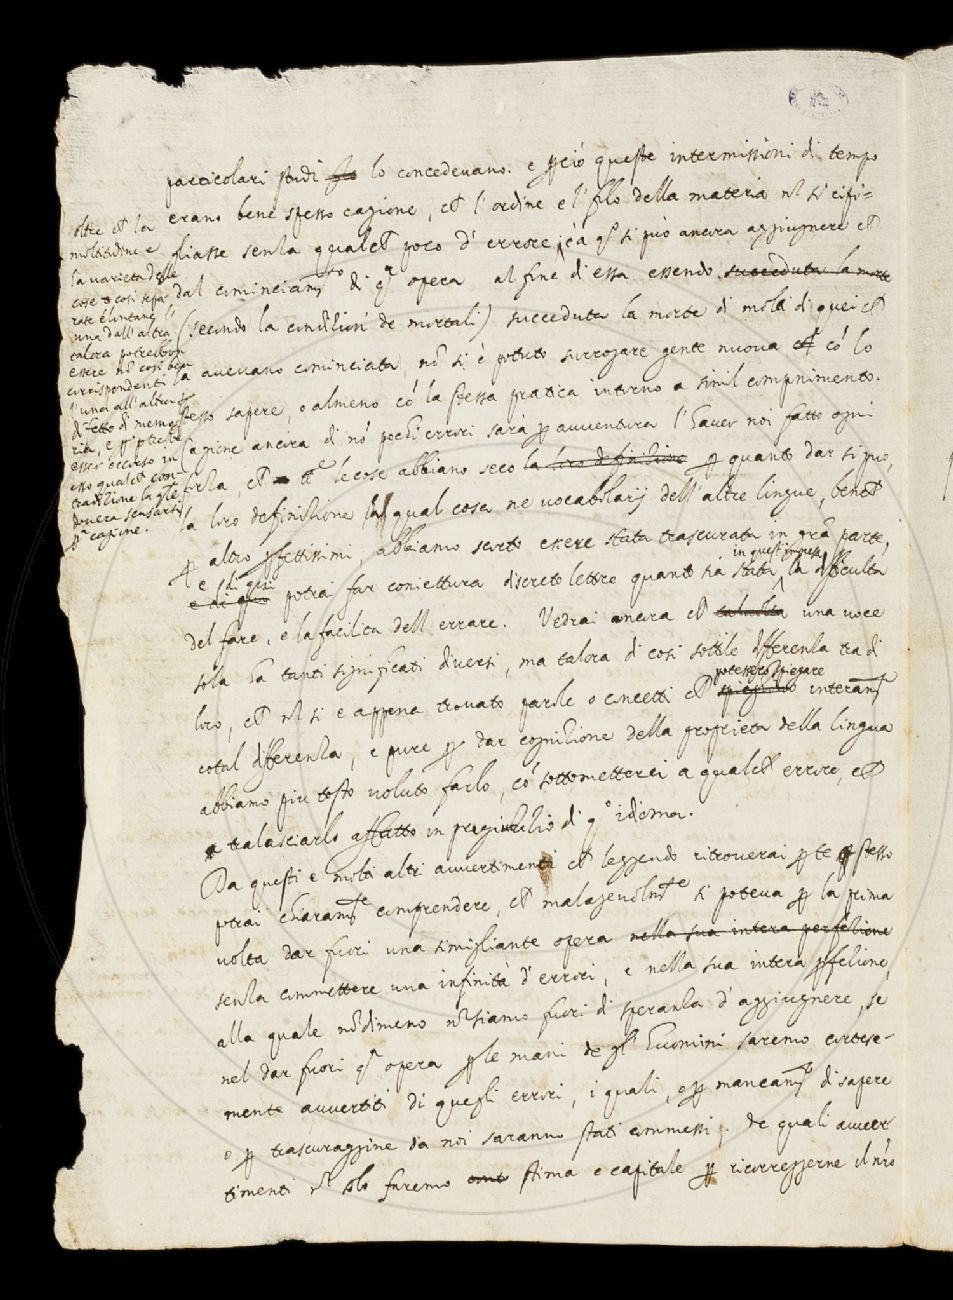 particolari studi lo concedevano. e p ciò queste intermissioni di tempo
erano bene spesso cagione, ch l'ordine e l' filo della materia nō si ripi-
gliasse senza qualch poco d' errore, a q° si può ancora aggiugnere ch
dal cominciam.to di q.a opera al fine di essa essendo succeduta la morte
(secondo la condizion' de mortali) succeduta la morte di molti di quei ch
la avevano cominciata nō si è potuto surrogare gente nuova ch cō lo
stesso sapere, o almeno cō la stessa pratica intorno a simil componimento.
Cagione ancora di nō pochi errori sarà p avventura l' haver noi fatto ogni
forza, ch le cose abbiano seco la loro definizione p quanto dar si può,
la loro definizione la qual cosa ne vocabolarij dell' altre lingue, bench
p altro pfettissimi, abbiamo scorto essere stata trascurata in grā parte,
e di qui
in quest'impresa
e di qui potrai far coniettura discreto lettore quanto sia stata la difficulta
del fare, e la facilita dell errare. Vedrai ancora ch talvolta una voce
sola ha tanti significati diversi, ma talora di cosi sottile differenza tra di
potessero spiegare
loro, ch nō si e appena trovato parole o concetti ch spieghino interam.te
cotal differenza, e pure p dar cognizione della proprieta della lingua
abbiamo piu tosto voluto farlo, cō sottometterci a qualch errore, ch
tralasciarlo affatto in pregiudizio di q° idioma.
Da questi e molti altri avvertimenti ch leggendo ritroverai p te stesso
potrai chiaram.te comprendere, ch malagevolm.te si poteva p la prima
volta dar fuori una simigliante opera nella sua intera perfezione
senza commettere una infinità d' errori, e nella sua intera pfezione,
alla quale nōdimeno nō siamo fuori di speranza d' aggiugnere, se
nel dar fuori q.a opera p le mani de gl' huomini saremo cortese-
mente avvertiti di quegli errori, i quali, o p mancam.to di sapere
o p trascuraggine da noi saranno stati commessi. de quali avver
timenti nō solo faremo stima e capitale p ricorreggerne il nro
oltre ch la
moltitudine e
la varieta delle
cose e cosi sepa
rate e lontane l'
una dall' altra
talora potrebbon
essere nō cosi ben
corrispondenti
l'una all'altra p
difetto di memo
ria, e p potrebbe
esser occorso in
esso qualch con
tradizione la qle
dovera scusarsi
p cagione.